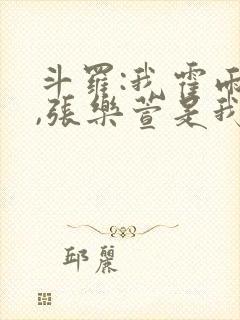 斗羅:我霍雨
,張樂萱是我
邱麗